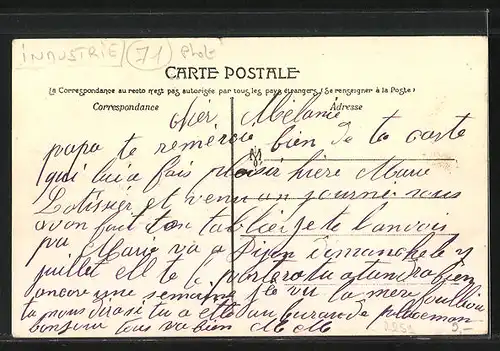 INDUSTRIE (71) Phot
CARTE POSTALE
La Correspondance au recto n'est pas autorisée par tous les pays étrangers (Se renseigner à la Poste)
Correspondance Adresse
Mélanie
papa te remercie bien de ta carte
qui lui a fais plaisir hiere Marie
et venu an journé nous
avon fait ton tablier je te l'anvois
par Marie va a Dijon dimanche le
juillet ell te portera tu atandra bien
ancore une semaine je vu la mère
tu nous diras si tu a etté au
bonjour tous va bien M M